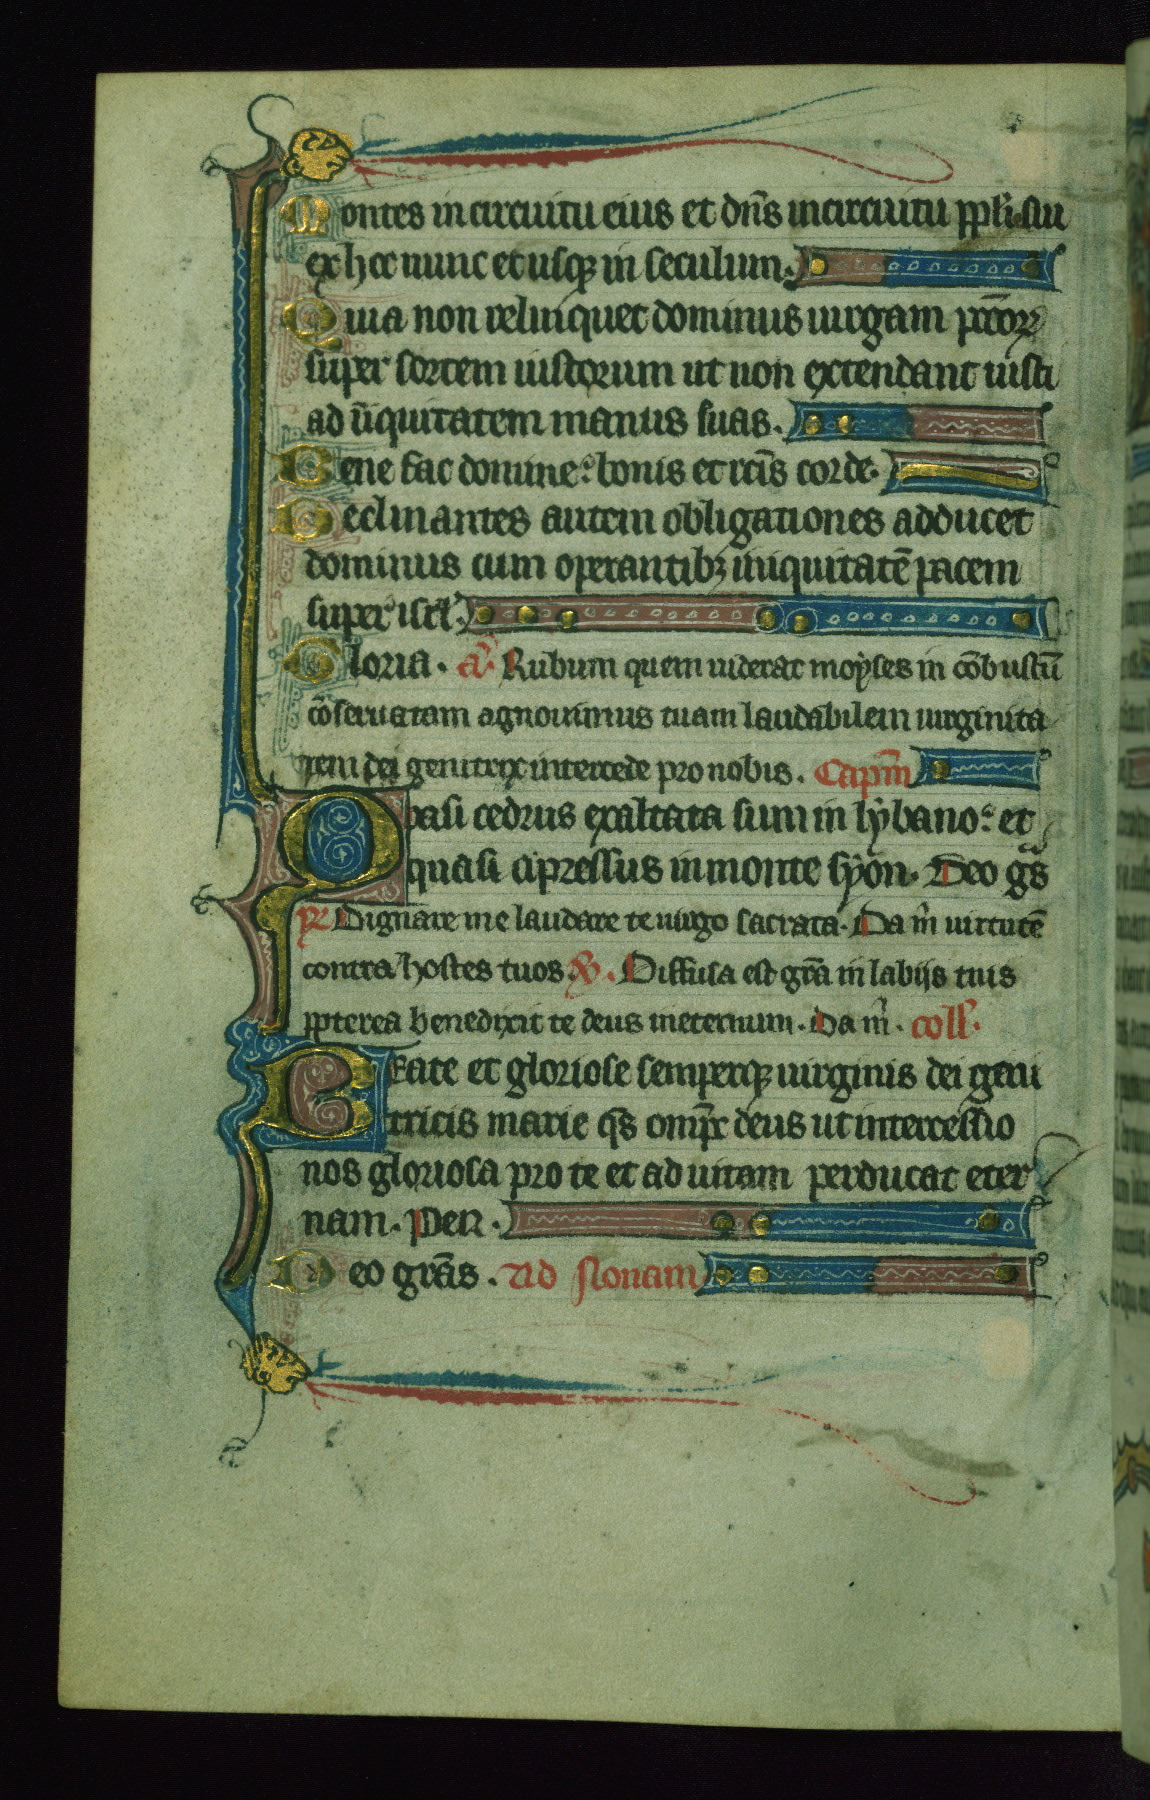 Montes in circuitu eius et dn̄s in circuitu ppl̄i sui
ex hoc nunc et usqꝫ in seculum.
Quia non relinquet dominus uirgam pctōꝝ
super sortem iustorum ut non extendant iusti
ad iniquitatem manus suas.
Bene fac domine: bonis et rct̄is corde.
Declinantes autem obligationes adducet
dominus cum operantibꝫ iniquitatē pacem
super isrl̄.
Gloria. an̄. Rubum quem uiderat moyses in cōbustū
cōseruatam agnouimus tuam laudabilem uirginita
tem dei genitrix intercede pro nobis. Capm̄
Quasi cedrus exaltata sum in lybano: et
quasi cipressus in monte syon. Deo gr̄s
℣ Dignare me laudare te uirgo sacrata. Da m̄ uirtutē
contra hostes tuos ℣. Diffusa est grā in labijs tuis
ꝓpterea benedixit te deus in eternum. Da m̄. coll̄.
Beate et gloriose semperqꝫ uirginis dei geni
tricis marie qs̄ omp̄s deus ut intercessio
nos gloriosa prote et ad uitam perducat eter
nam. Per.
Deo grās. Ad nonam